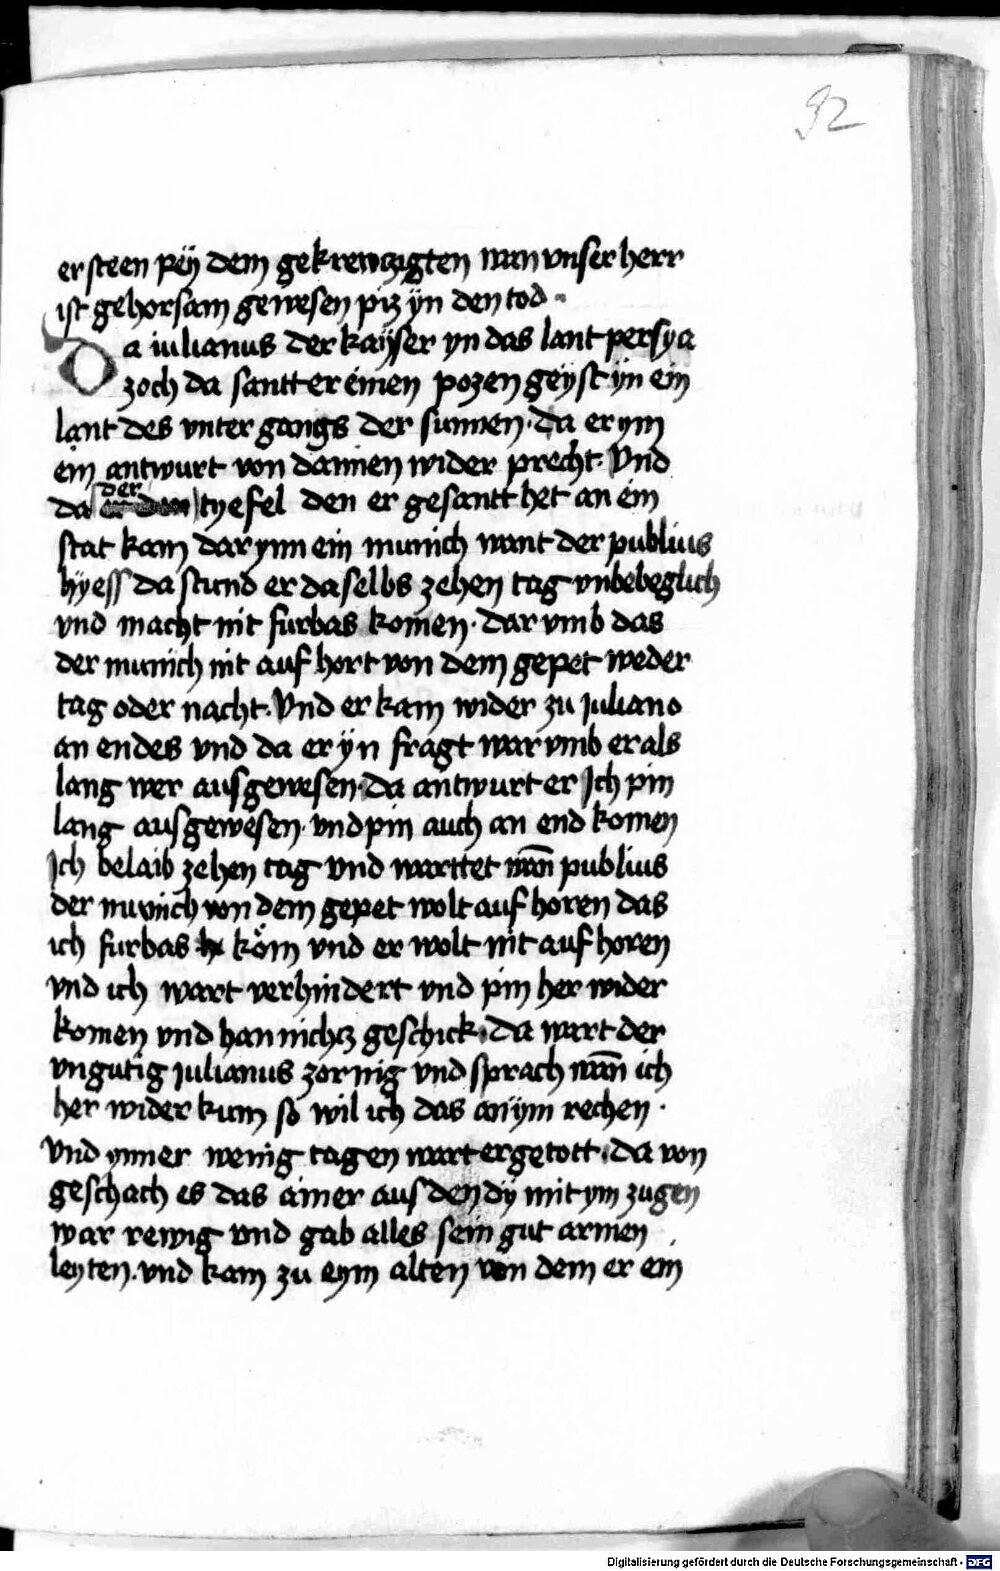 92
er steen pey dem gekrewczigten wan vnser herr
ist gehorsam gewesen piz yn den tod
Da iulianus der kayser yn das lant persya
zoch da santt er einen pozen geyst yn ein
lant des vnter gangs der sunnen · da er ym
ein antwurt von dannen wider precht · Vnd
da der tyefel den er gesantt het an ein
stat kam dar ynn ein munich want der publius
hyess da stund er daselbs zehen tag vnbebeglich
vnd macht nit furbas komen · dar vmb das
der munich nit auf hort von dem gepet weder
tag oder nacht · Vnd er kam wider zu Juliano
an endes vnd da er yn fragt war vmb er als
lang wer ausgewesen · da antwurt er Ich pin
lang ausgewesen · vnd pin auch an end komen
Ich belaib zehen tag vnd warttet wan̄ publius
der munich von dem gepet wolt auf horen das
ich furbas köm vnd er wolt nit auf horen
vnd ich wart verhindert vnd pin her wider
komen vnd han nichcz geschick · da wart der
vngutig iulianus zornig vnd sprach wan̄ ich
her wider kum so wil ich das an ym rechen ·
Vnd ynner wenig tagen wart er getott · da von
geschach es das ainer aus den dy mit ym zugen
war rewig vnd gab alles sein gut armen
leyten · vnd kam zu eym alten von dem er ein
Digitalisierung gefördert durch die Deutsche Forschungsgemeinschaft - DFG